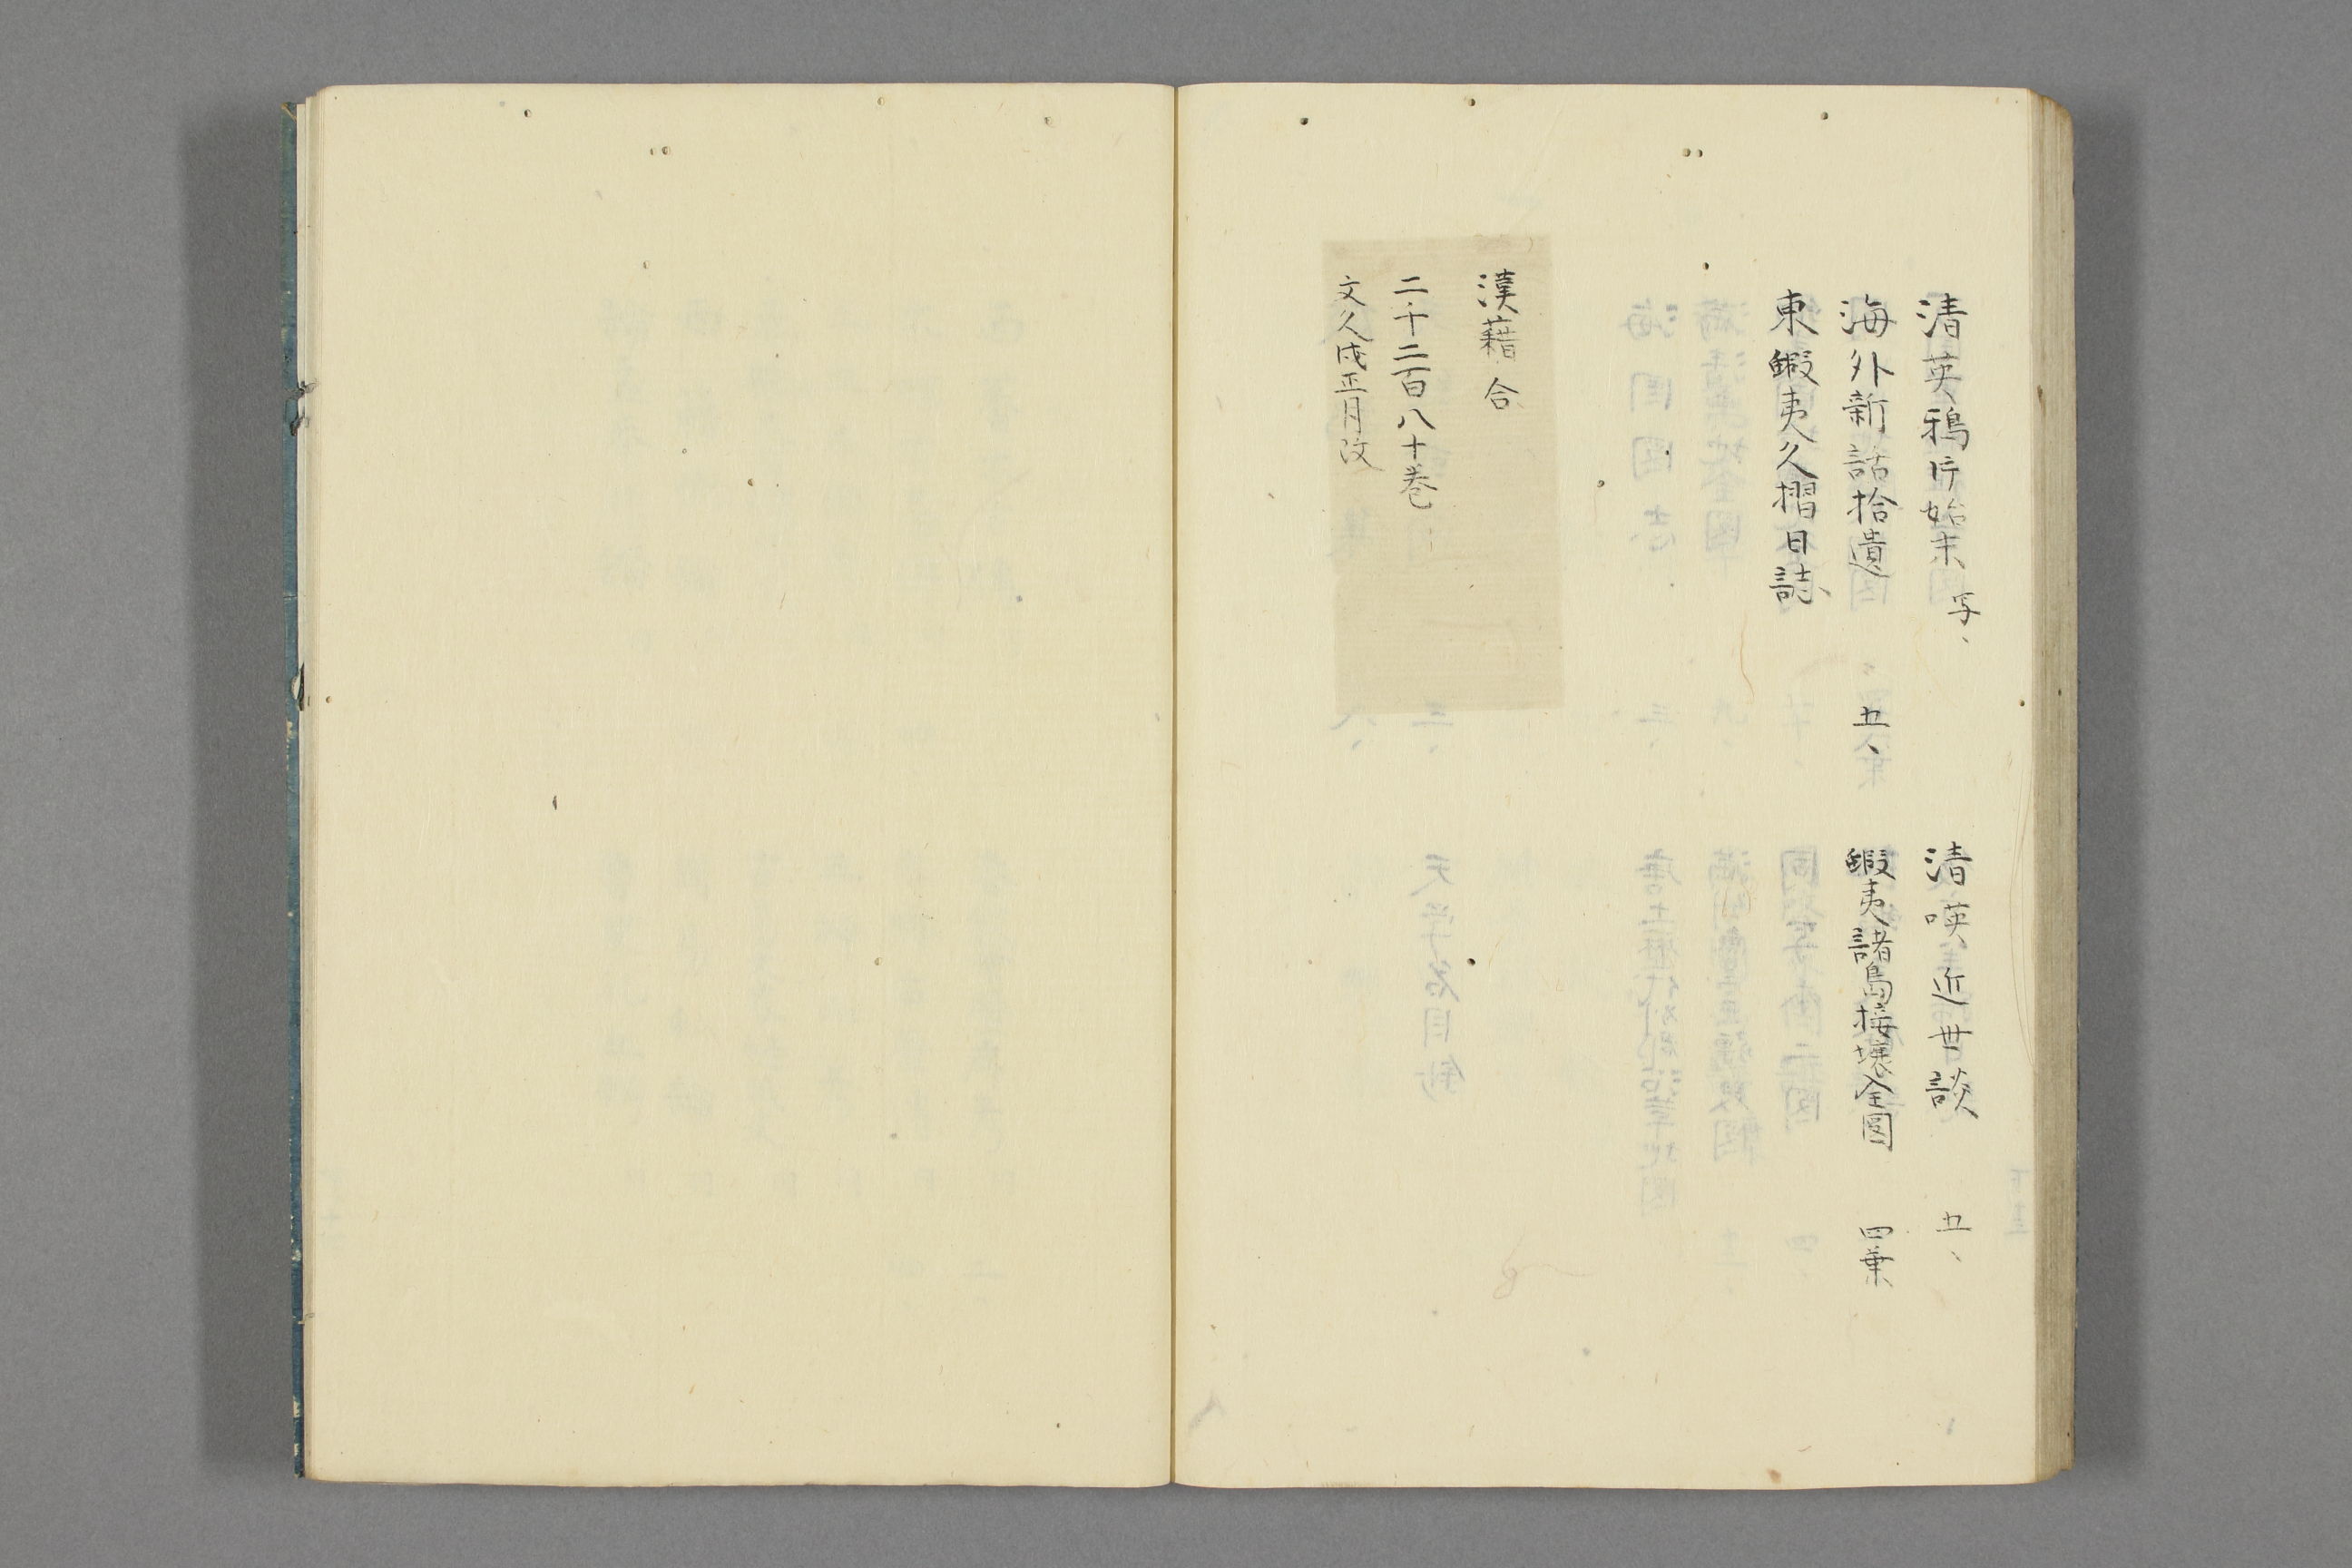 清英鴉片始末 写、
清暎近世談 五、
海外新話拾遺 五、
蝦夷諸島接壌全圖 四葉
東蝦夷久摺日誌
漢藉合
二千二百八十巻
文久戌正月改